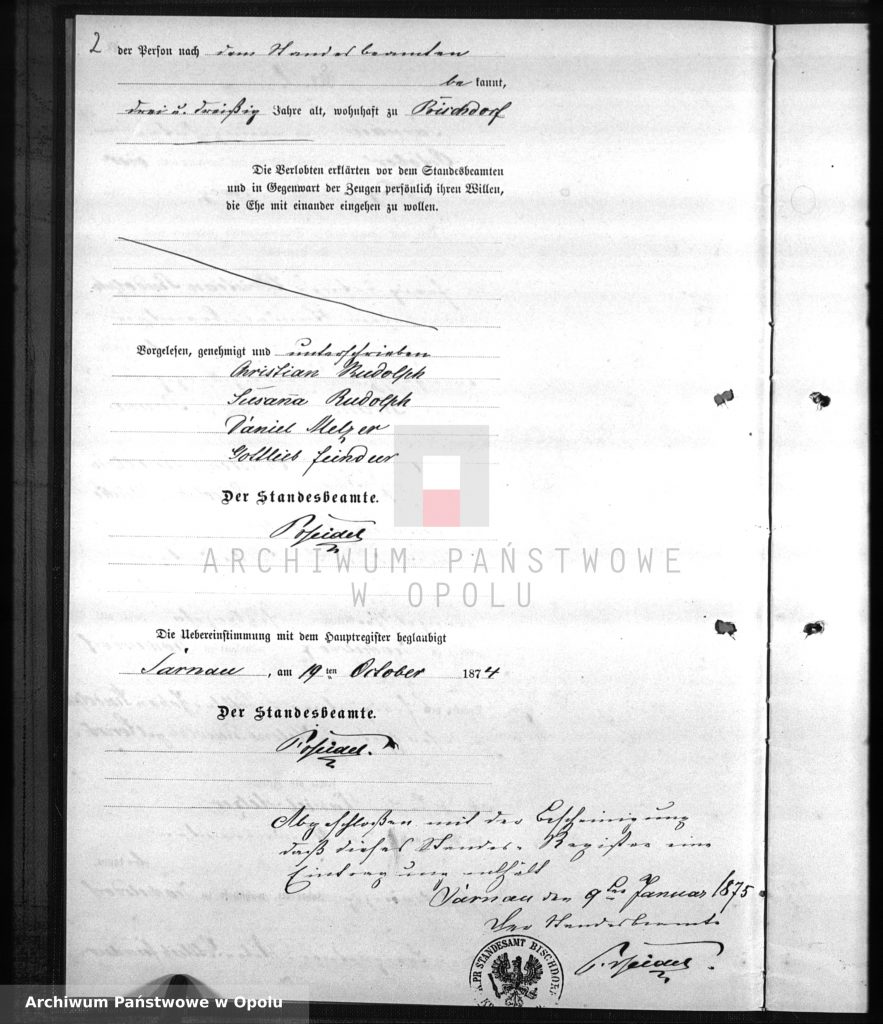 2
der Person nach dem Standesbeamten
be kannt,
drei u. dreißig Jahre alt, wohnhaft zu Bischdorf
Die Verlobten erklärten vor dem Standesbeamten
und in Gegenwart der Zeugen persönlich ihren Willen,
die Ehe mit einander eingehen zu wollen.
Vorgelesen, genehmigt und unterschrieben
Christian Rudolph
Susanna Rudolph
Daniel Melzer
Gottlieb
Der Standesbeamte.
ARCHIWUM PAŃSTWOWE
W OPOLU
Die Uebereinstimmung mit dem Hauptregister beglaubigt
Tarnau, am 19 ten October 1874
Der Standesbeamte.
Abgeschloßen mit der Bescheinigung
daß dieses Standes-Register eine
Eintragung enthält
Tarnau den 9ten Januar 1875
Der Standesbeamte
PR STANDESAMT BISCHDORF
Archiwum Państwowe w Opolu